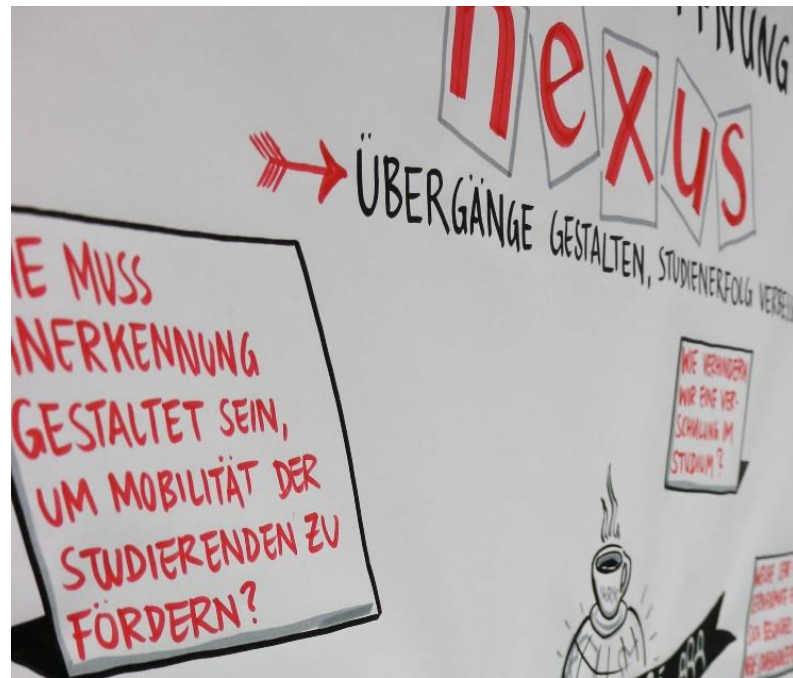 nexus
ÜBERGÄNGE GESTALTEN, STUDIENERFOLG
MUSS
GESTALTET SEIN,
UM MOBILITÄT DER
STUDIERENDEN ZU
FÖRDERN?
WIE VERHINDERN
WIR EINE VER-
SCHULUNG IM
STUDIUM?